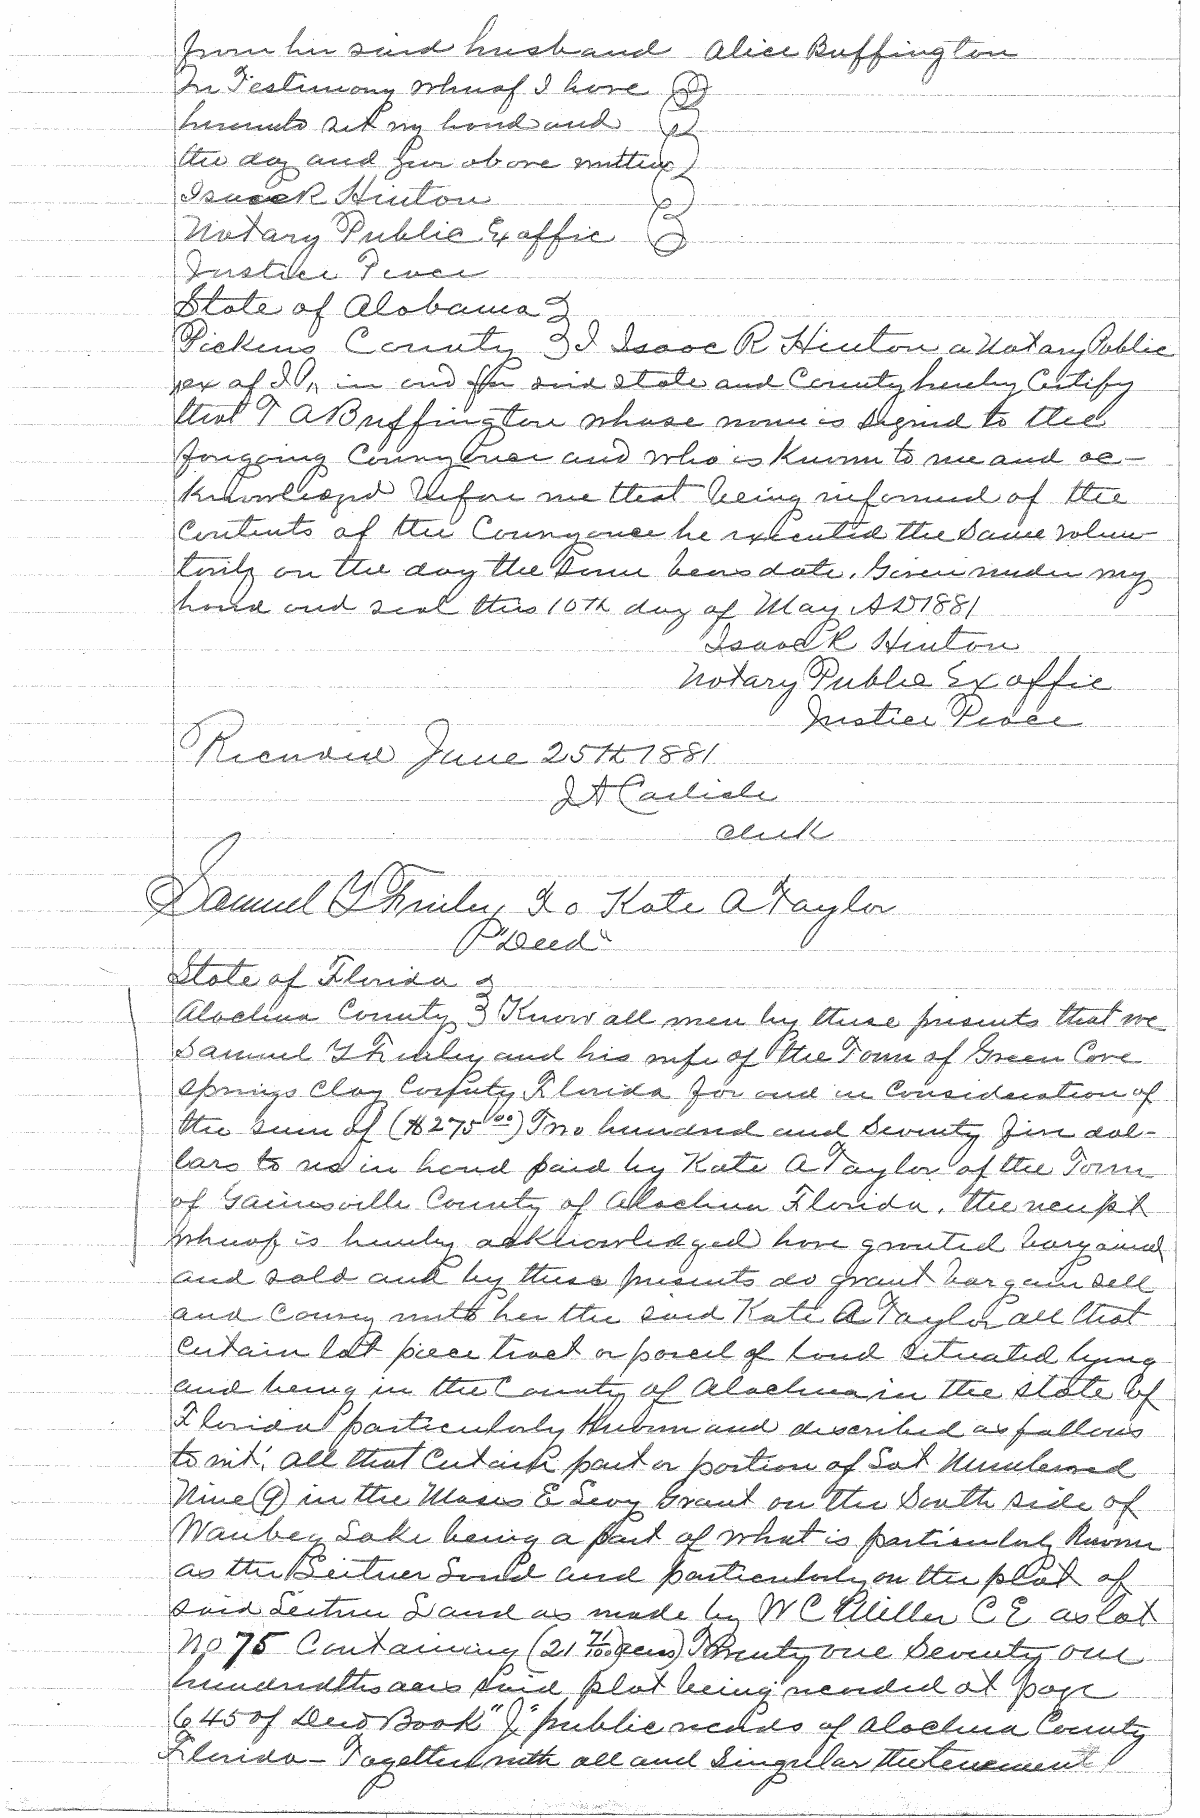 from her said husband Alice Buffington
In Testimony whereof I have
hereunto set my hand and
the day and year above written
Isaac R Hinton
Notary Public Ex offic
Justice Peace
State of Alabama
Pickens County I Isaac R Hinton a Notary Public
ex of J P, in and for said state and County hereby Certify
that T A Buffington whose name is signed to the
foregoing Conveyance and who is Known to me and ac-
knowledged before me that being informed of the
Contents of the Conveyance he executed the Same volun-
tarily on the day the Same bears date. Given under my
hand and seal this 10th day of May AD 1881
Isaac R Hinton
Notary Public Ex offic
Justice Peace
Recorded June 25th 1881
J A Carlisle
Clerk
Samuel Y Finley To Kate A Taylor
"Deed"
State of Florida
Alachua County Know all men by these presents that we
Samuel Y Finley and his wife of the Town of Green Cove
Springs Clay County Florida for and in Consideration of
the sum of ($275 00) Two hundred and Seventy five dol-
lars to us in hand paid by Kate A Taylor of the Town
of Gainesville County of Alachua Florida, the receipt
whereof is hereby acknowledged have granted bargained
and sold and by these presents do grant bargain sell
and Convey unto her the said Kate A Taylor all that
Certain lot piece tract or parcel of land situated lying
and being in the County of Alachua in the state of
Florida particularly Known and described as follows
to wit; all that Certain part or portion of Lot Numbered
Nine (9) in the Moses E Levy Grant on the South side of
Wauberg Lake being a part of what is particularly Known
as the Leitner Land and particularly on the plat of
said Leitner Land as made by W C Miller C E as lot
No 75 Containing (21 71/100 acres) Twenty one Seventy one
hundredths acres said plat being recorded at page
645 of Deed Book "J" public records of Alachua County
Florida - Together with all and Singular the tenement